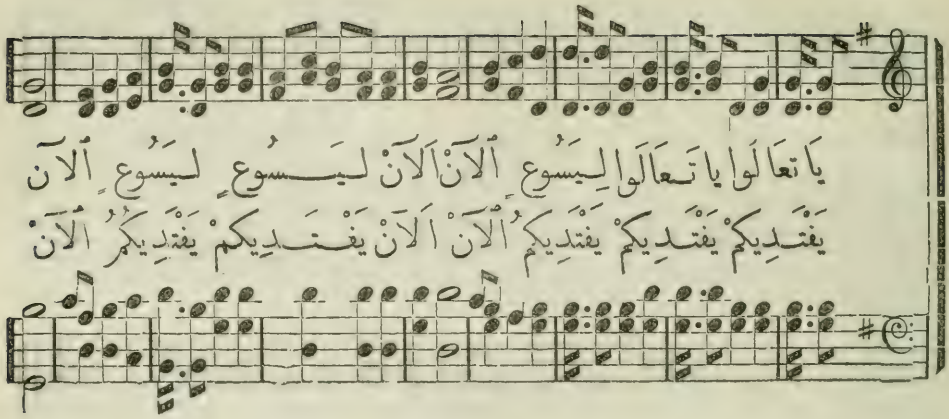 يَا تعَالَوا يا تَعَالَوا لِيَسُوعِ ٱلآنْ اَلآنْ لـيَـسُـوعٍ لـيَسُوعٍ ٱلآن
يَفْتَـدِيكمْ يَفْتَـدِيكمْ يَفتَدِيكمُ ٱلآنْ اَلآنْ يَفْـتَـدِيكمْ يَفتَدِيكُمُ ٱلآنْ